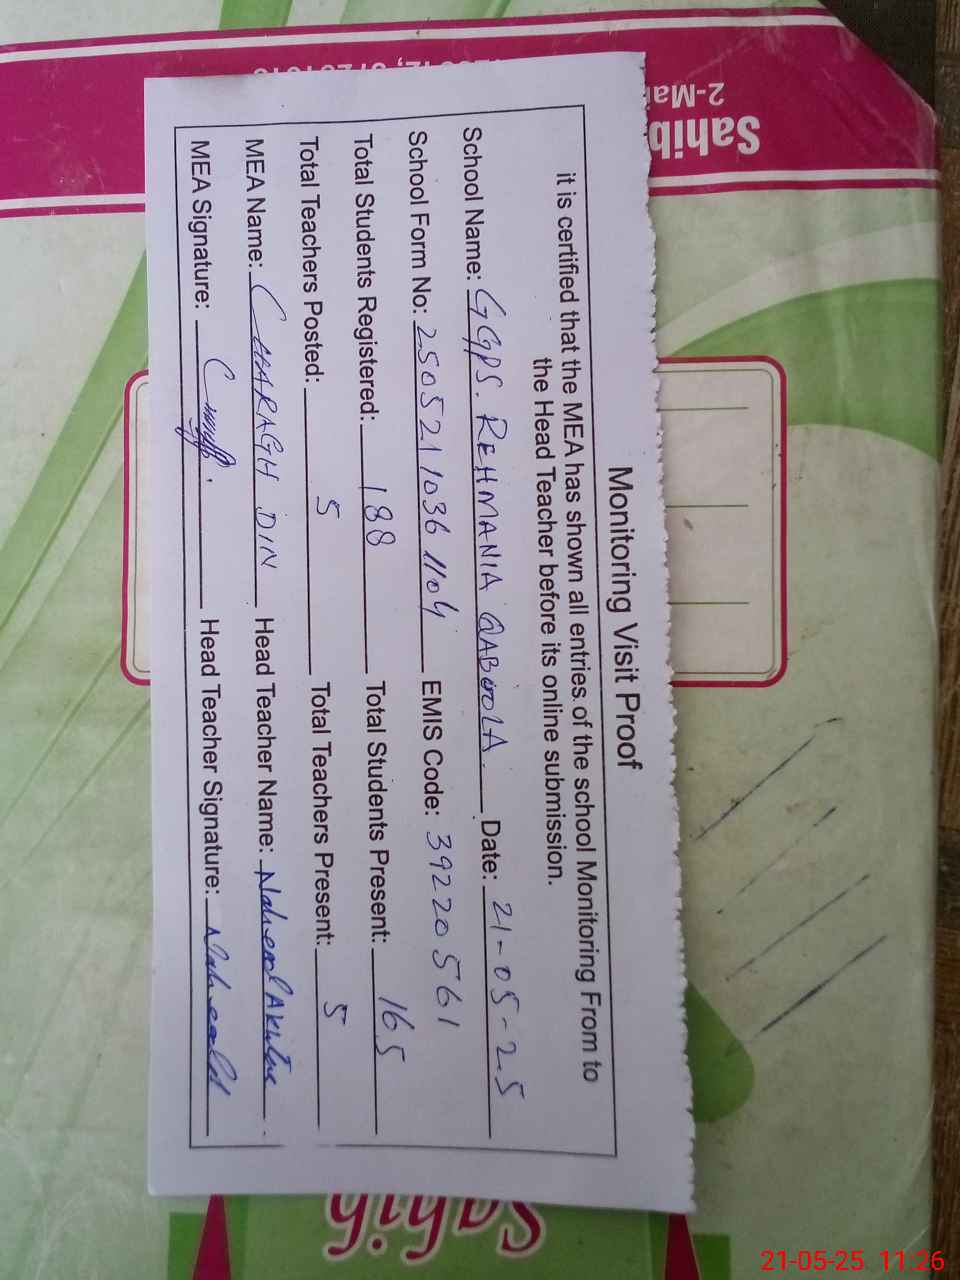 Monitoring Visit Proof
it is certified that the MEA has shown all entries of the school Monitoring From to
the Head Teacher before its online submission.
School Name: GGPS. REHMANIA QABOOLA. Date: 21-05-25
School Form No: 2505211036 1104 EMIS Code: 39220561
Total Students Registered: 188 Total Students Present: 165
Total Teachers Posted: 5 Total Teachers Present: 5
MEA Name: CHARAGH DIN Head Teacher Name: Naheed Akhtar
MEA Signature: Head Teacher Signature: Naheed
Sahib
2-Mai
Sahib
21-05-25 11:26